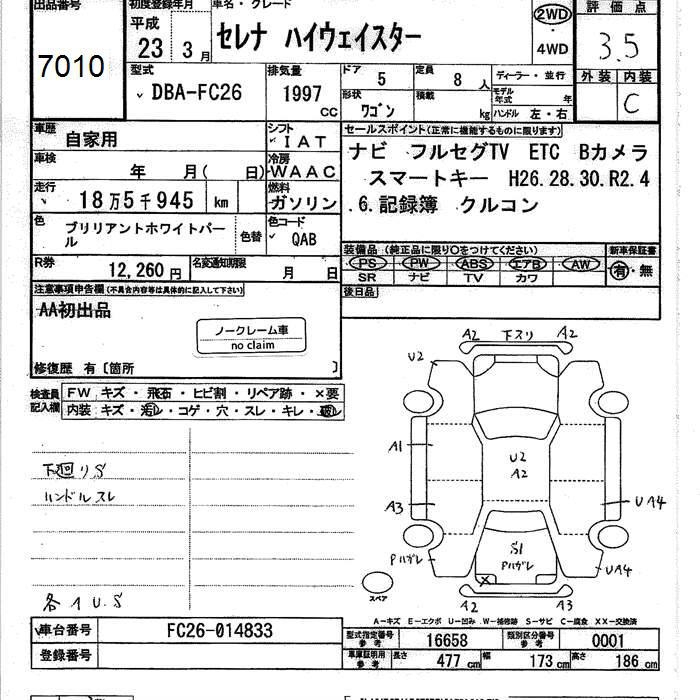 出品番号
7010
初度登録年月
平成
23年 3月
車名・グレード
セレナ ハイウェイスター
2WD
・
4WD
評価点
3.5
外装 内装
C
型式
DBA-FC26
排気量
1997
CC
ドア 5
定員 8人
形状 ワゴン
積載 kg
ディーラー・並行
モデル年式 年
ハンドル 左・右
車歴 自家用
シフト IAT
車検 年 月( 日)
冷房 WAAC
走行 18万5千945 km
燃料 ガソリン
色 ブリリアントホワイトパール
色替
色コード QAB
R券 12,260円
名変通知期限 月 日
セールスポイント(正常に機能するものに限ります)
ナビ フルセグTV ETC Bカメラ
スマートキー H26.28.30.R2.4
.6.記録簿 クルコン
装備品(純正品に限り○をつけてください)
新車保証書
PS PW ABS エアB AW
有・無
SR ナビ TV カワ
後日品
注意事項申告欄(不具合内容等は具体的に記入して下さい)
AA初出品
ノークレーム車
no claim
修復歴 有〔箇所 〕
検査員記入欄
FW キズ・飛石・ヒビ割・リペア跡・×要
内装 キズ・汚レ・コゲ・穴・スレ・キレ・破レ
下廻りS
ハンドルスレ
各1U.S
A2 下スリ A2
U2
A1
U2
A2
A3
UA4
S1
Pハガレ
Pハガレ
UA4
X
A2 A3
スペア
A-キズ E-エクボ U-凹み W-補修跡 S-サビ C-腐食 XX-交換済
車台番号 FC26-014833
登録番号
型式指定番号 参考 16658
類別区分番号 参考 0001
車庫証明用 参考 長さ 477cm 幅 173cm 高さ 186cm